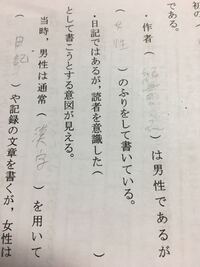 初の
である。
・作者（紀貫之）は男性であるが
（女性）のふりをして書いている。
・日記ではあるが、読者を意識した（
として書こうとする意図が見える。
当時、男性は通常（漢字）を用いて
（日記）や記録の文章を書くが、女性は